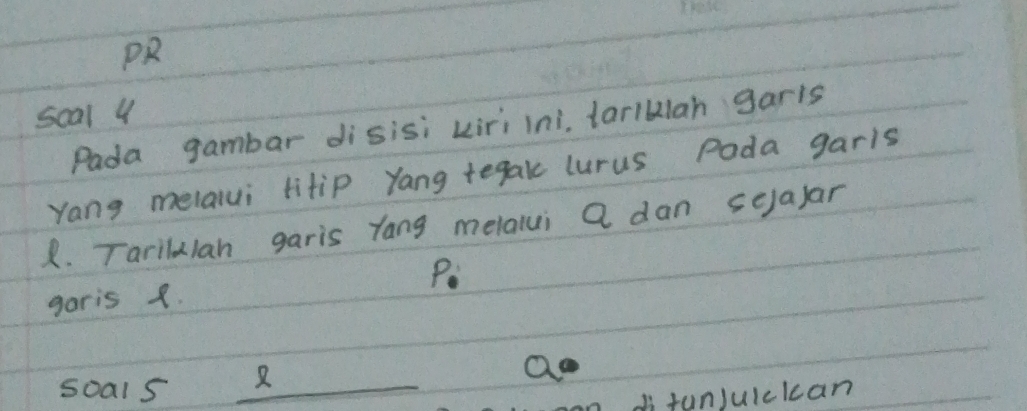 PR
Soal 4
Pada gambar disisi kiri ini. tariklah garis
yang melalui titip yang tegak lurus Pada garis
l. Tariklah garis yang melalui Q dan sejajar
garis l.
P.
Soal 5 l Q
ditunjukkan